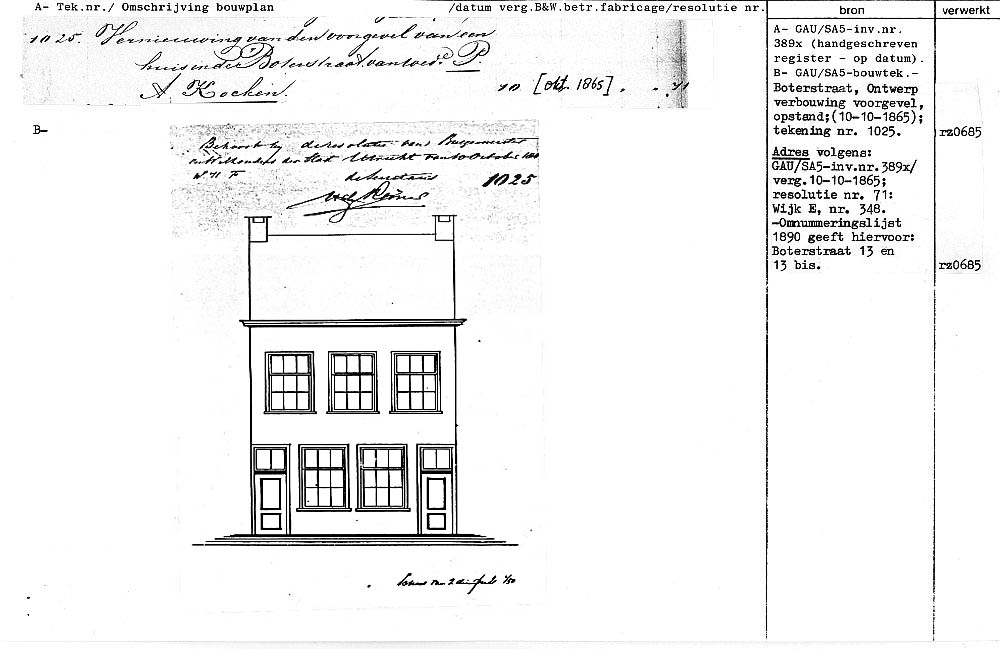 A- Tek.nr./ Omschrijving bouwplan /datum verg.B&W.betr.fabricage/resolutie nr.
bron
verwerkt
1025. Vernieuwing van den voorgevel van een
huis in de Boterstraat, van wed.e P.
A Kochen.
10 [okt. 1865]. 71
B-
Behoort bij de resolutie van Burgemeester
en Wethouders der stad Utrecht van 10 October
N° 71 F
de Secretaris
1025
A- GAU/SA5-inv.nr.
389x (handgeschreven
register - op datum).
B- GAU/SA5-bouwtek.-
Boterstraat, Ontwerp
verbouwing voorgevel,
opstand;(10-10-1865);
tekening nr. 1025.
rz0685
Adres volgens:
GAU/SA5-inv.nr.389x/
verg.10-10-1865;
resolutie nr. 71:
Wijk E, nr. 348.
-Omnummeringslijst
1890 geeft hiervoor:
Boterstraat 13 en
13 bis.
rz0685